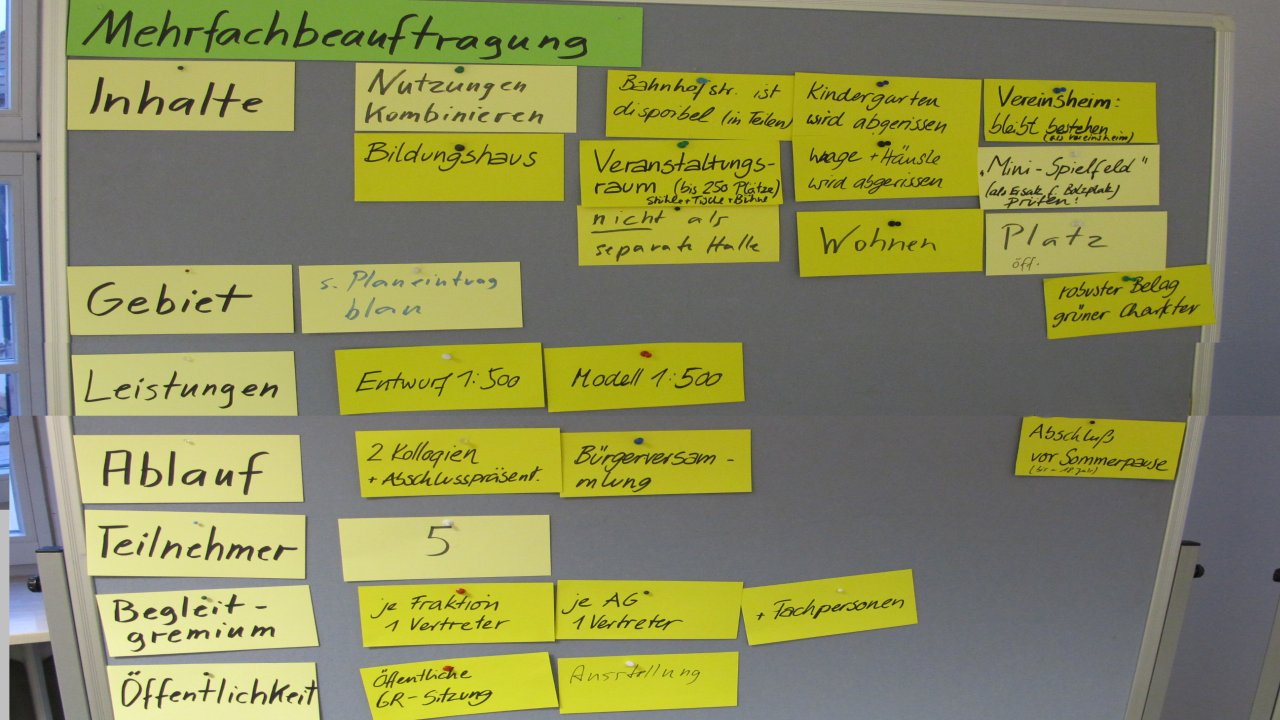 Mehrfachbeauftragung
Inhalte
Nutzungen
Kombinieren
Bahnhofstr. ist
disponibel (in Teilen)
Kindergarten
wird abgerissen
Vereinsheim:
bleibt bestehen
(als Vereinsheim)
Bildungshaus
Veranstaltungs-
raum (bis 250 Plätze)
Stühle + Tische + Bühne
Waage + Häusle
wird abgerissen
„Mini-Spielfeld"
(als Ersatz f. Bolzplatz)
Prüfen!
nicht als
separate Halle
Wohnen
Platz
öff.
robuster Belag
grüner Charakter
Gebiet
s. Planeintrag
blau
Leistungen
Entwurf 1:500
Modell 1:500
Ablauf
2 Kollogien
+ Abschlusspräsent.
Bürgerversam-
mlung
Abschluß
vor Sommerpause
Teilnehmer
5
Begleit-
gremium
je Fraktion
1 Vertreter
je AG
1 Vertreter
+ Fachpersonen
Öffentlichkeit
Öffentliche
GR-Sitzung
Ausstellung